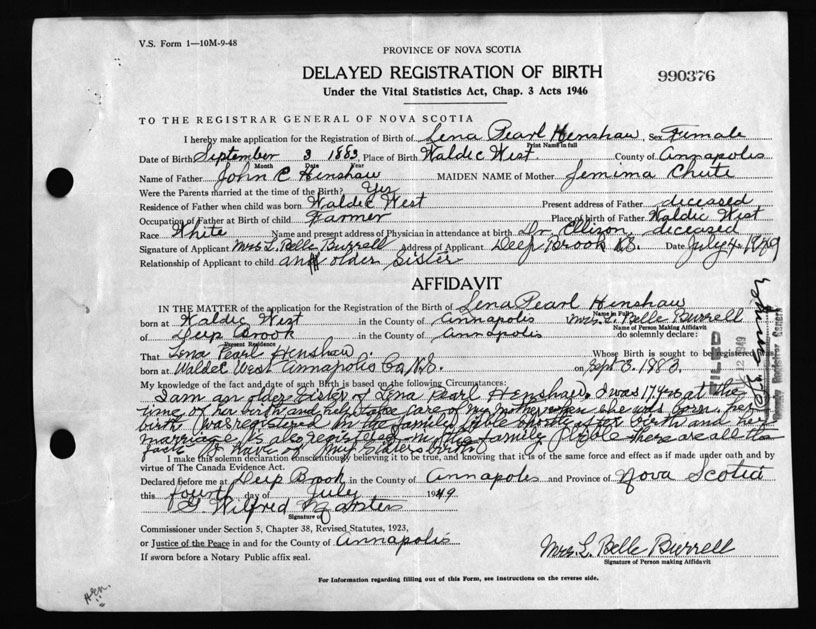 V.S. Form 1—10M-9-48
PROVINCE OF NOVA SCOTIA
DELAYED REGISTRATION OF BIRTH
990376
Under the Vital Statistics Act, Chap. 3 Acts 1946
TO THE REGISTRAR GENERAL OF NOVA SCOTIA
I hereby make application for the Registration of Birth of Lena Pearl Henshaw, Sex Female
Print Name in full
Date of Birth September 3 1883, Place of Birth Waldec West. County of Annapolis
Month Date Year
Name of Father John C Henshaw MAIDEN NAME of Mother Jemima Chute
Were the Parents married at the time of the Birth? Yes
Residence of Father when child was born Waldec West Present address of Father deceased
Occupation of Father at Birth of child Farmer Place of birth of Father Waldec West
Race White Name and present address of Physician in attendance at birth Dr Ellison, deceased
Signature of Applicant Mrs L. Belle Burrell Address of Applicant Deep Brook N.S. Date July 4 1949
Relationship of Applicant to child an older sister
AFFIDAVIT
IN THE MATTER of the application for the Registration of the Birth of Lena Pearl Henshaw
Name in Full
born at Waldec West in the County of Annapolis Mrs. L. Belle Burrell
Name of Person Making Affidavit
of Deep Brook in the County of Annapolis do solemnly declare:
Present Residence
That Lena Pearl Henshaw. Whose Birth is sought to be registered
born at Waldec West Annapolis Co, N.S. on Sept 3. 1883.
My knowledge of the fact and date of such Birth is based on the following Circumstances:
I am an older sister of Lena Pearl Henshaw, I was 17 yrs at the
time of her birth and help take care of my mother when she was born, her
birth was registered in the family Bible shortly after birth and her
marriage is also registered in the family Bible these are all the
facts I have of my sisters birth
I make this solemn declaration conscientiously believing it to be true, and knowing that it is of the same force and effect as if made under oath and by
virtue of The Canada Evidence Act.
Declared before me at Deep Brook in the County of Annapolis and Province of Nova Scotia
this fourth day of July 1949
G Wilfred Marsters
Signature of
Commissioner under Section 5, Chapter 38, Revised Statutes, 1923,
or Justice of the Peace in and for the County of Annapolis
If sworn before a Notary Public affix seal.
Mrs. L. Belle Burrell
Signature of Person making Affidavit
For Information regarding filling out of this Form, see instructions on the reverse side.
FILED
12 1949
Deputy Registrar General